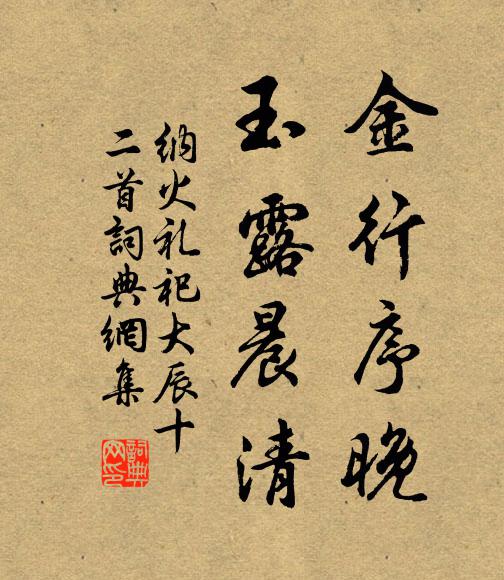 金行序晚
玉露晨清
納火礼祀大辰十
二首詞典網集
詞典
网印